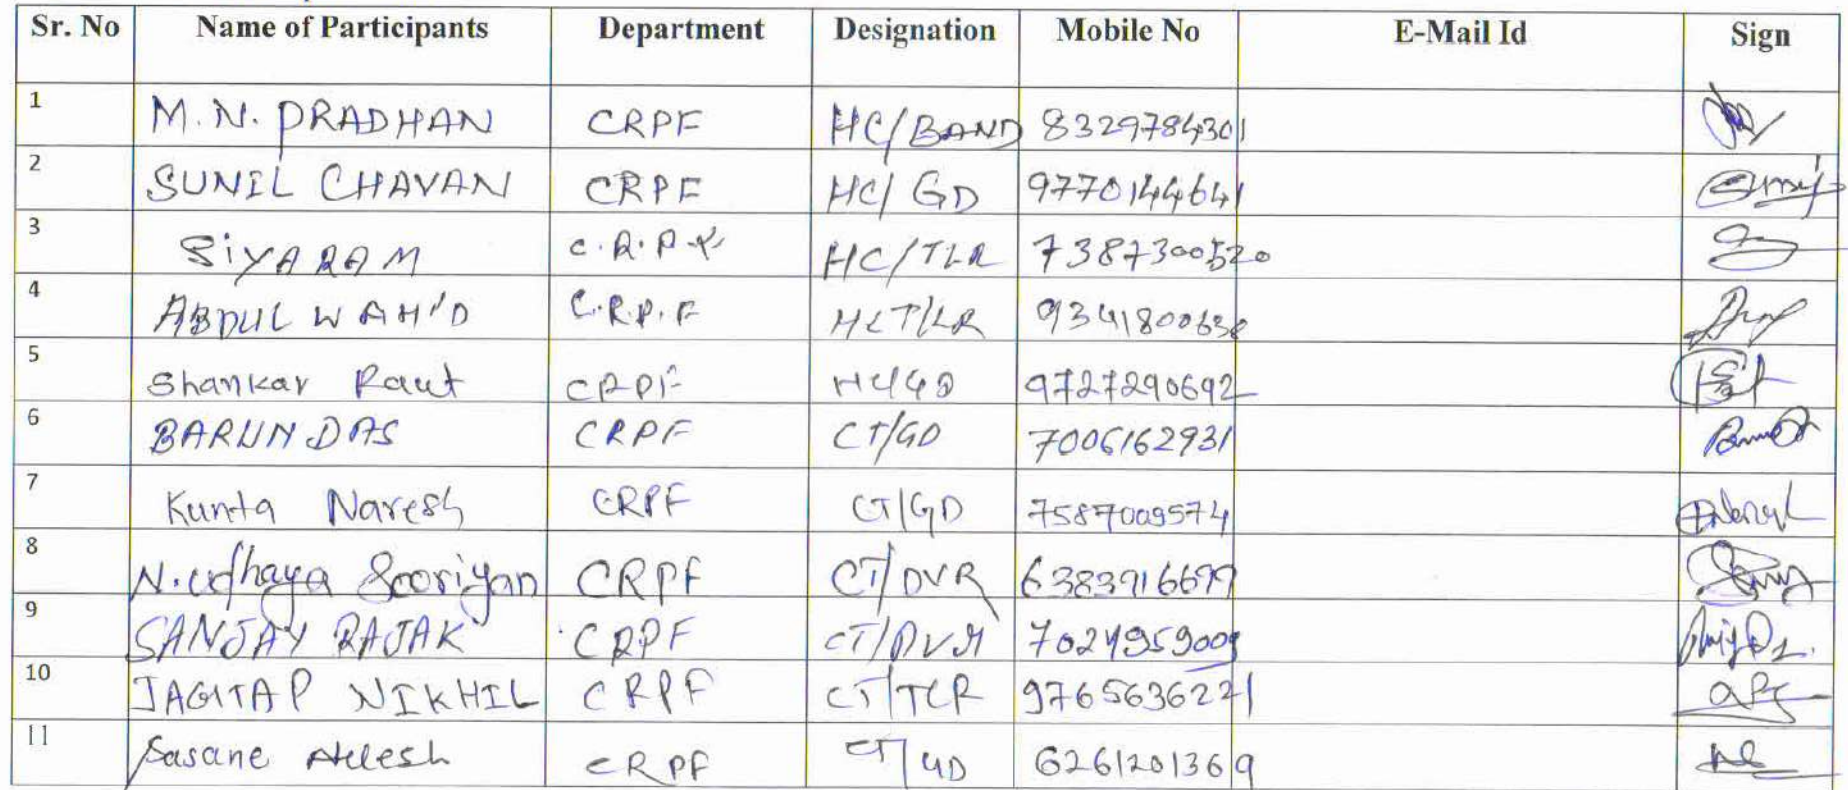 Sr. No Name of Participants Department Designation Mobile No E-Mail Id Sign
1 M.N. PRADHAN CRPF HC/BAND 8329784301
2 SUNIL CHAVAN CRPF HC/GD 9770144641
3 SiYARAM C.R.P.F. HC/TLR 7387300520
4 ABDUL WAHID C.R.P.F HCT/LR 9341800630
5 Shankar Raut CRPF HC/GD 9727290692
6 BARUN DAS CRPF CT/GD 7006162931
7 Kunta Naresh CRPF CT/GD 7587009574
8 N.udhaya Sooriyan CRPF CT/DVR 6383916699
9 SANJAY RAJAK CRPF CT/DVR 7024959009
10 JAGTAP NIKHIL CRPF CT/TLR 9765636221
11 Sasane CRPF CT/GD 6261201369